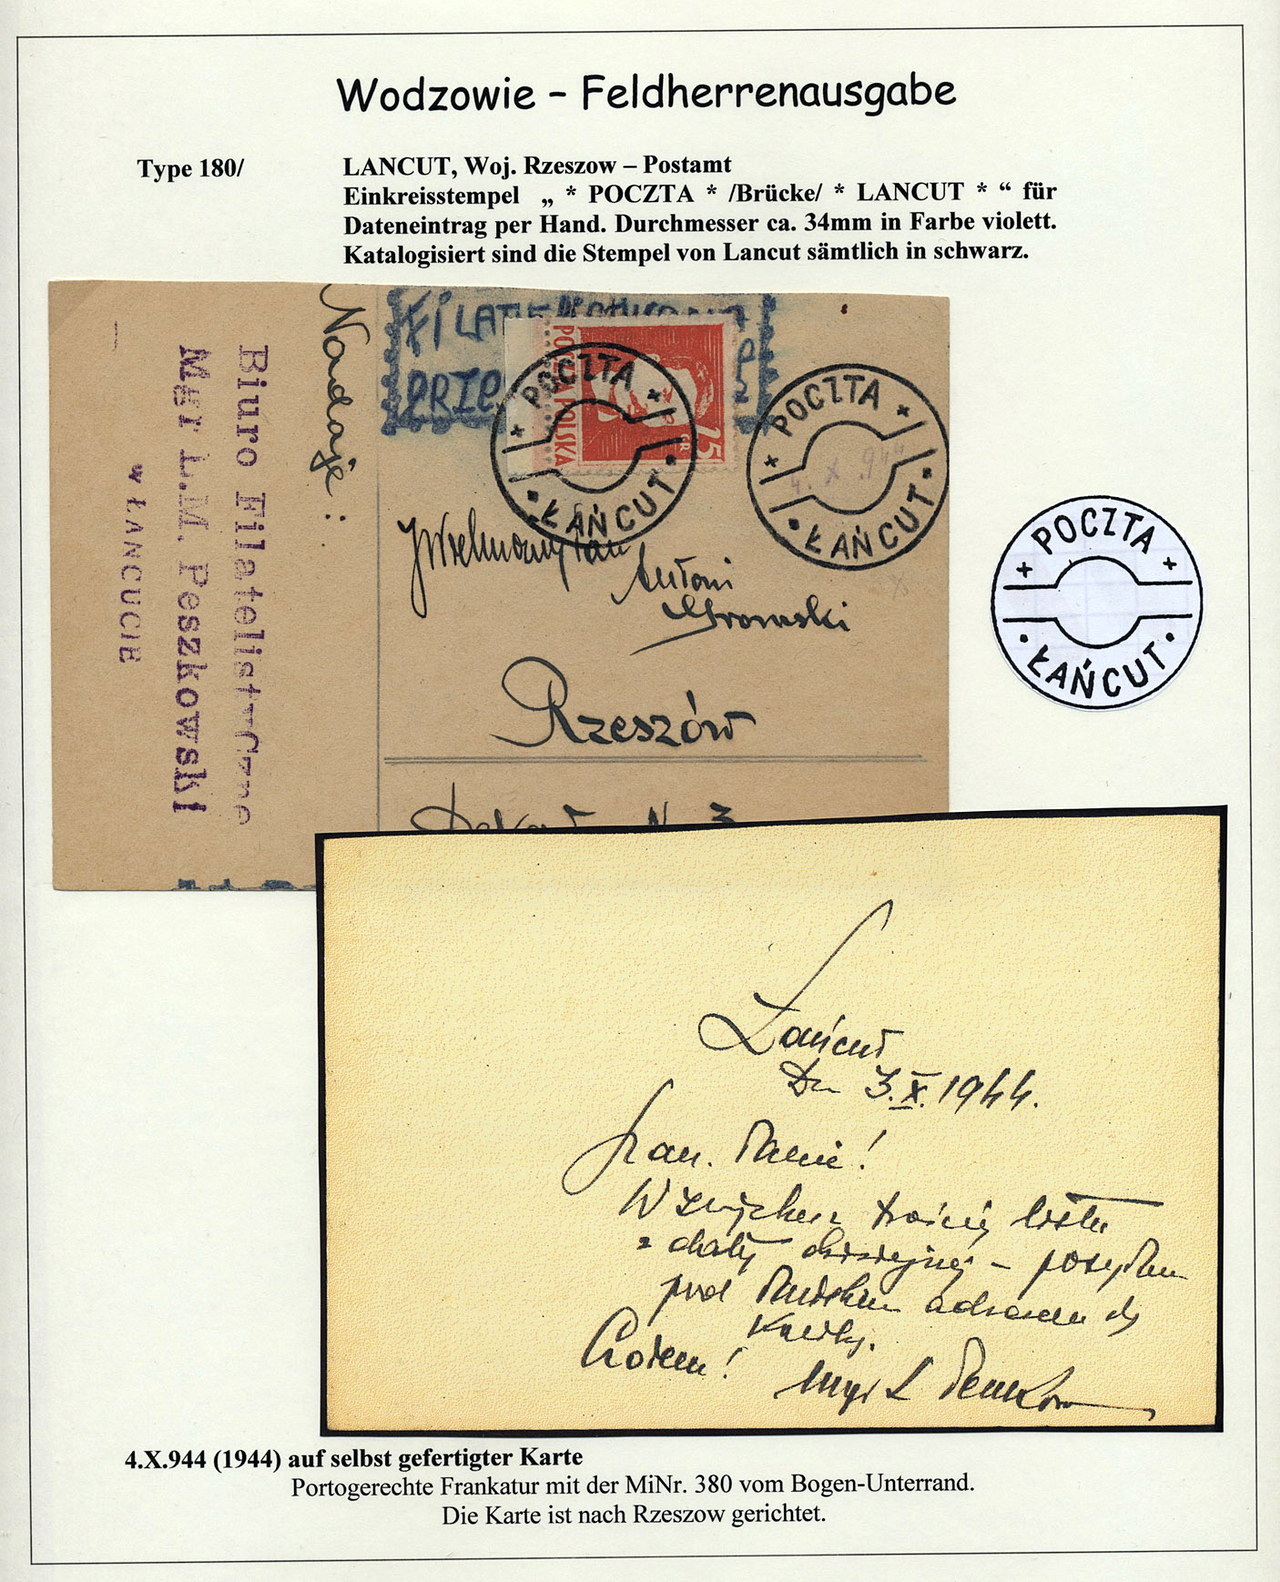 Wodzowie – Feldherrenausgabe
Type 180/
LANCUT, Woj. Rzeszow – Postamt
Einkreisstempel „ * POCZTA * /Brücke/ * LANCUT * “ für
Dateneintrag per Hand. Durchmesser ca. 34mm in Farbe violett.
Katalogisiert sind die Stempel von Lancut sämtlich in schwarz.
Nadaje:
Biuro Filatelistyczne
Mgr L.M. Peszkowski
w ŁAŃCUCIE
POCZTA POLSKA
25
+ POCZTA +
• ŁAŃCUT •
+ POCZTA +
4. X .944
• ŁAŃCUT •
+ POCZTA +
• ŁAŃCUT •
JWielmożny Pan
Antoni
Gromski
Rzeszów
N 3
Łańcut
Dn 3.X.1944.
Szan. Panie!
W listu
z daty
pod adresem
Kartkę.
Czołem!
Mgr L
4.X.944 (1944) auf selbst gefertigter Karte
Portogerechte Frankatur mit der MiNr. 380 vom Bogen-Unterrand.
Die Karte ist nach Rzeszow gerichtet.